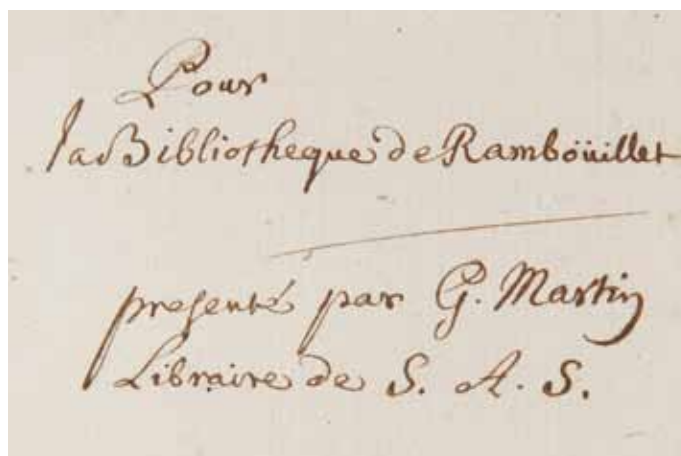 Pour
la Bibliotheque de Ramboüillet
presenté par G. Martin
Libraire de S. A. S.